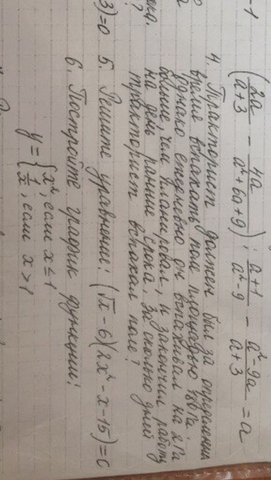 -1
(2a/a+3 - 4a/a²+6a+9) : a+1/a²-9 - a²-9a/a+3 = a
4. Тракторист должен был за определённ
время вспахать поле площадью га.
Однако ежедневно он вспахивал на га
больше, чем планировал, и закончил работу
на день раньше срока. За сколько дней
тракторист вспахал поле?
3)=0 5. Решите уравнение: (√x-6)(2x²-x-15)=0
6. Постройте график функции:
y={x², если x≤1
1/x, если x>1